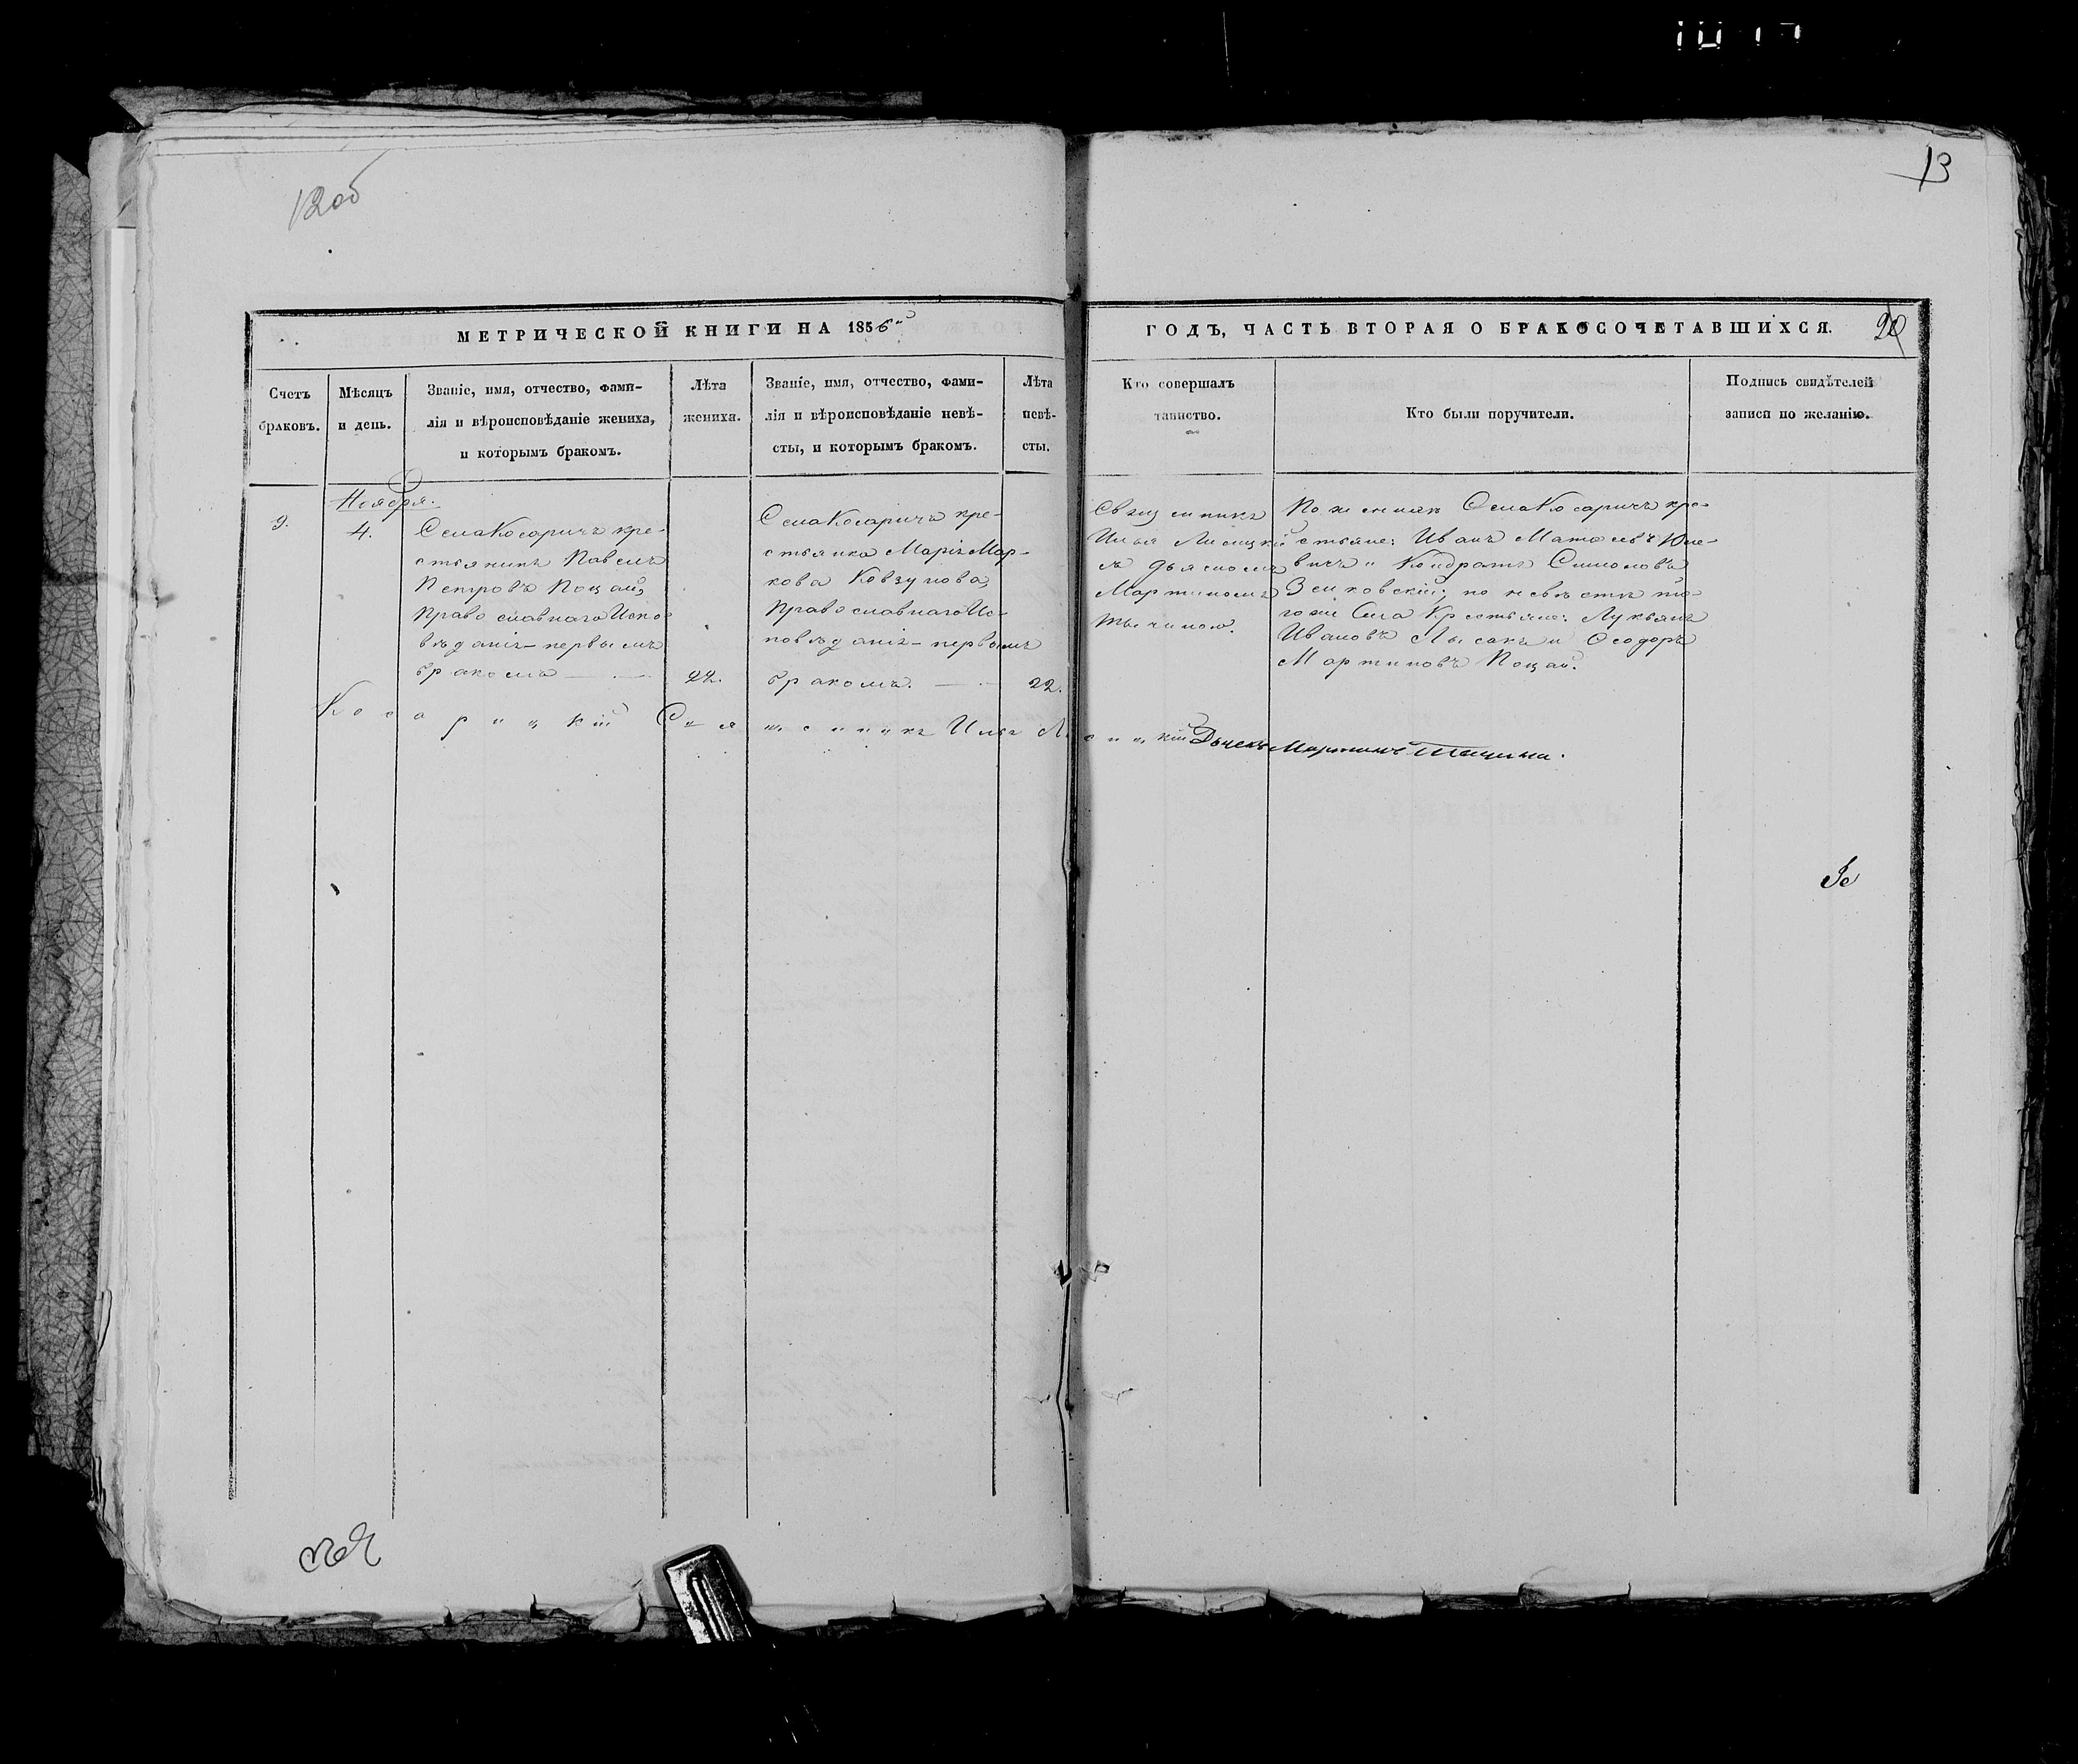 12 об
13
МЕТРИЧЕСКОЙ КНИГИ НА 1856й
ГОДЪ, ЧАСТЬ ВТОРАЯ О БРАКОСОЧЕТАВШИХСЯ.
Счетъ
браковъ.
Мѣсяцъ
и день.
Званіе, имя, отчество, фами-
лія и вѣроисповѣданіе жениха,
и которымъ бракомъ.
Лѣта
жениха.
Званіе, имя, отчество, фами-
лія и вѣроисповѣданіе невѣ-
сты, и которымъ бракомъ.
Лѣта
невѣ-
сты.
Кто совершалъ
таинство.
Кто были поручители.
Подпись свидѣтелей
записи по желанію.
9.
Ноября.
4.
Села Косаричъ кре-
стьянинъ Павелъ
Петровъ Поцай,
православнаго Испо-
вѣданія – первымъ
бракомъ
22.
Села Косаричъ кре-
стьянка Марія Мар-
кова Ковзунова,
православнаго Ис-
повѣданія – первымъ
бракомъ.
22.
Священникъ
Илья Лисицкій
съ дьячкомъ
Мартиномъ
Тычиною.
По женихѣ Села Косаричъ кре-
стьяне: Иванъ Матѳеевъ
и Кондратъ Симоновъ
Зенковскій; по невѣстѣ то-
гоже Села Крестьяне: Лукьянъ
Ивановъ Лысакъ и Ѳеодоръ
Мартиновъ Поцай.
Косарицкій Священникъ Илья Лисицкій Дьячекъ Мартинъ Тычина.